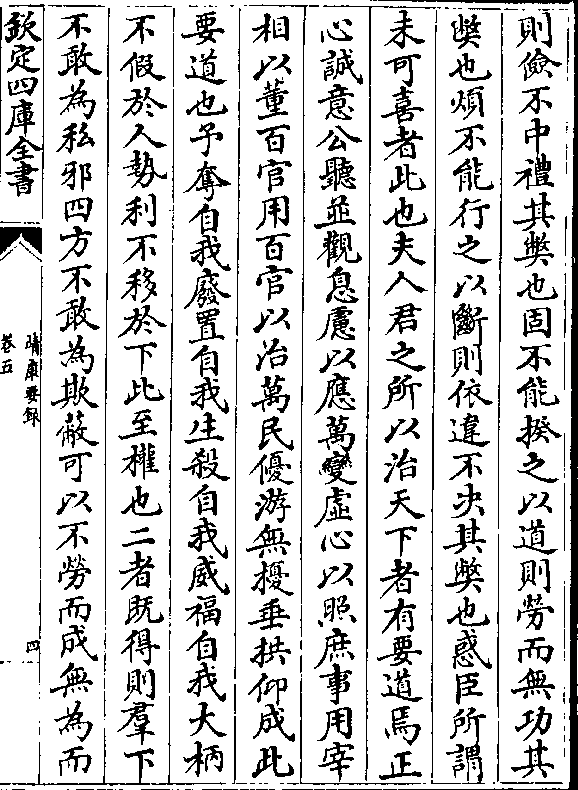 則儉不中禮其獘也固不能揆之以道則勞而無功其
獘也煩不能行之以斷則依違不决其獘也惑臣所謂
未可喜者此也夫人君之所以治天下者有要道焉正
心誠意公聽並觀息慮以應萬變虛心以照庶事用宰
相以董百官用百官以治萬民優游無擾垂拱仰成此
要道也予奪自我廢置自我生殺自我威福自我大柄
不假於人勢利不移於下此至權也二者既得則羣下
不敢為私邪四方不敢為欺蔽可以不勞而成無為而
欽定四庫全書
靖康要録
卷五
四